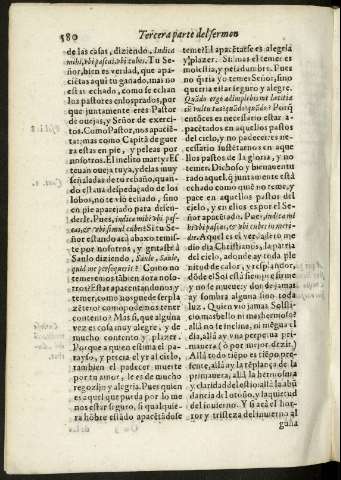 580
Tercera parte del sermon
de las casas, diziendo. Indica
mihi, vbi pascas, vbi cubes. Tu Se-
ñor, bien es verdad, que apa-
cietas aqui tu ganado, mas no
estas echado, como se echan
los pastores en los prados, por
que juntamente eres Pastor
de ouejas, y Señor de exerci-
tos. Como Pastor, nos apaciē-
ta: mas como Capitā de guer
ra estas en pie, y peleas por
nosotros. El inclito martyr Es
teuan oueja tuya, y de las muy
señaladas de tu rebaño, quan-
do estaua despedaçado de los
lobos, no te vio echado, sino
en pie aparejado para defen-
derle. Pues, indica mihi vbi pas-
cas, & vbi simul cubes? Si tu Se-
ñor estando acà abaxo temis-
te por nosotros, y gritaste à
Saulo diziendo, Saule, Saule,
quid me persequeris? Como no
temeremos tābien aora noso-
tros? Estar apacentandonos, y
temer, como nos puede ser pla
zētero? como podemos tener
contento? Mas si, que alguna
vez es cosa muy alegre, y de
mucho contento y plazer.
Porque a quien estima el pa-
rayso, y precia el yr al cielo,
tambien el padecer muerte
por tu amor, le es de mucho
regozijo y alegria. Pues quien
es aquel que pueda por lo me
nos estar seguro, si qualquie-
ra hōbre estando à peligro de
temer? El apacētarse es alegria
y plazer. Si: mas el temer es
molestia, y pesadumbre. Pues
no querria yo temer Señor, sino
queria estar seguro y alegre.
Quādo ergo adimplebis me lætitia
cū vultu tuo? quādo? quādo? Porq̃
entōces es necessario estar a-
pacētados en aquellos pastos
del cielo, y no padecer: es ne-
cessario sustētarnos en aque
llos pastos de la gloria, y no
temer. Dichoso y bienauentu
rado aquel q̃ juntamente està
echado como quié no teme, y
pace en aquellos pastos del
cielo, y en ellos es por el Se-
ñor apacētado. Pues, indica mi
hi vbi pascas, & vbi cubes in meri-
die. Aquel es el verdadero me
dio dia Christianos, la patria
del cielo, adonde ay toda ple
nitud de calor, y resplandor,
dōde el Sol està siempre firme
y no se mueue: y donde jamas
ay sombra alguna sino toda
luz. Quien vio jamas Solsti-
cio mas bello ni mas hermoso?
allà no se inclina, ni mēgua el
dia, allà ay vna perpetua pri-
mauera (ò por mejor dezir)
Allà todo tiēpo es tiēpo pre-
sente, allà ay la tēplança de la
primauera, allà la hermosura
y claridad del estio, allà la abū
dancia del otoño, y la quietud
del inuierno. Y si acà el hor-
ror y tristeza del inuierno al
guna